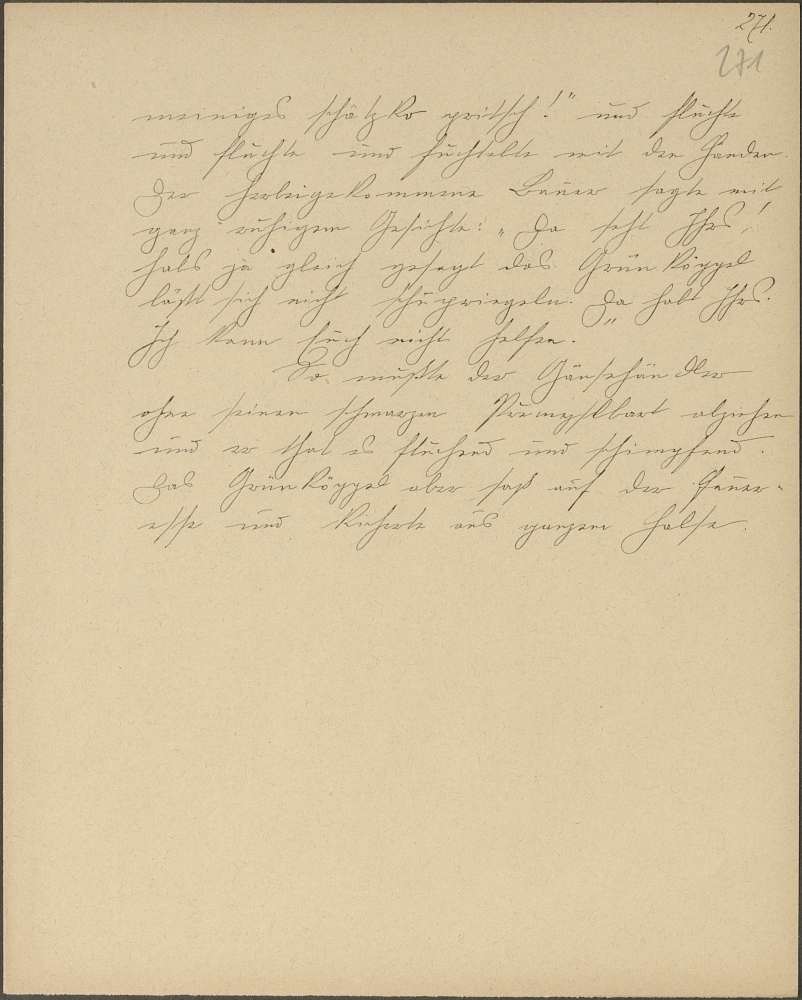 271.
271
meiniges schätzko pritsch!" und fluchte
und fluchte und fuchtelte mit den Händen.
Der herbeigekommene Bauer sagte mit
ganz ruhigem Gesichte: „Da seht Ihrs!
habs ja gleich gesagt das Grünköppel
läßt sich nicht schupriegeln. Da habt Ihrs.
Ich kann Euch nicht helfen.
So mußte der Gänsehändler
ohne seinen schwarzen abziehen
und er that es fluchend und schimpfend.
Das Grünköppel aber saß auf der Feuer-
esse und kicherte aus ganzem Halse.